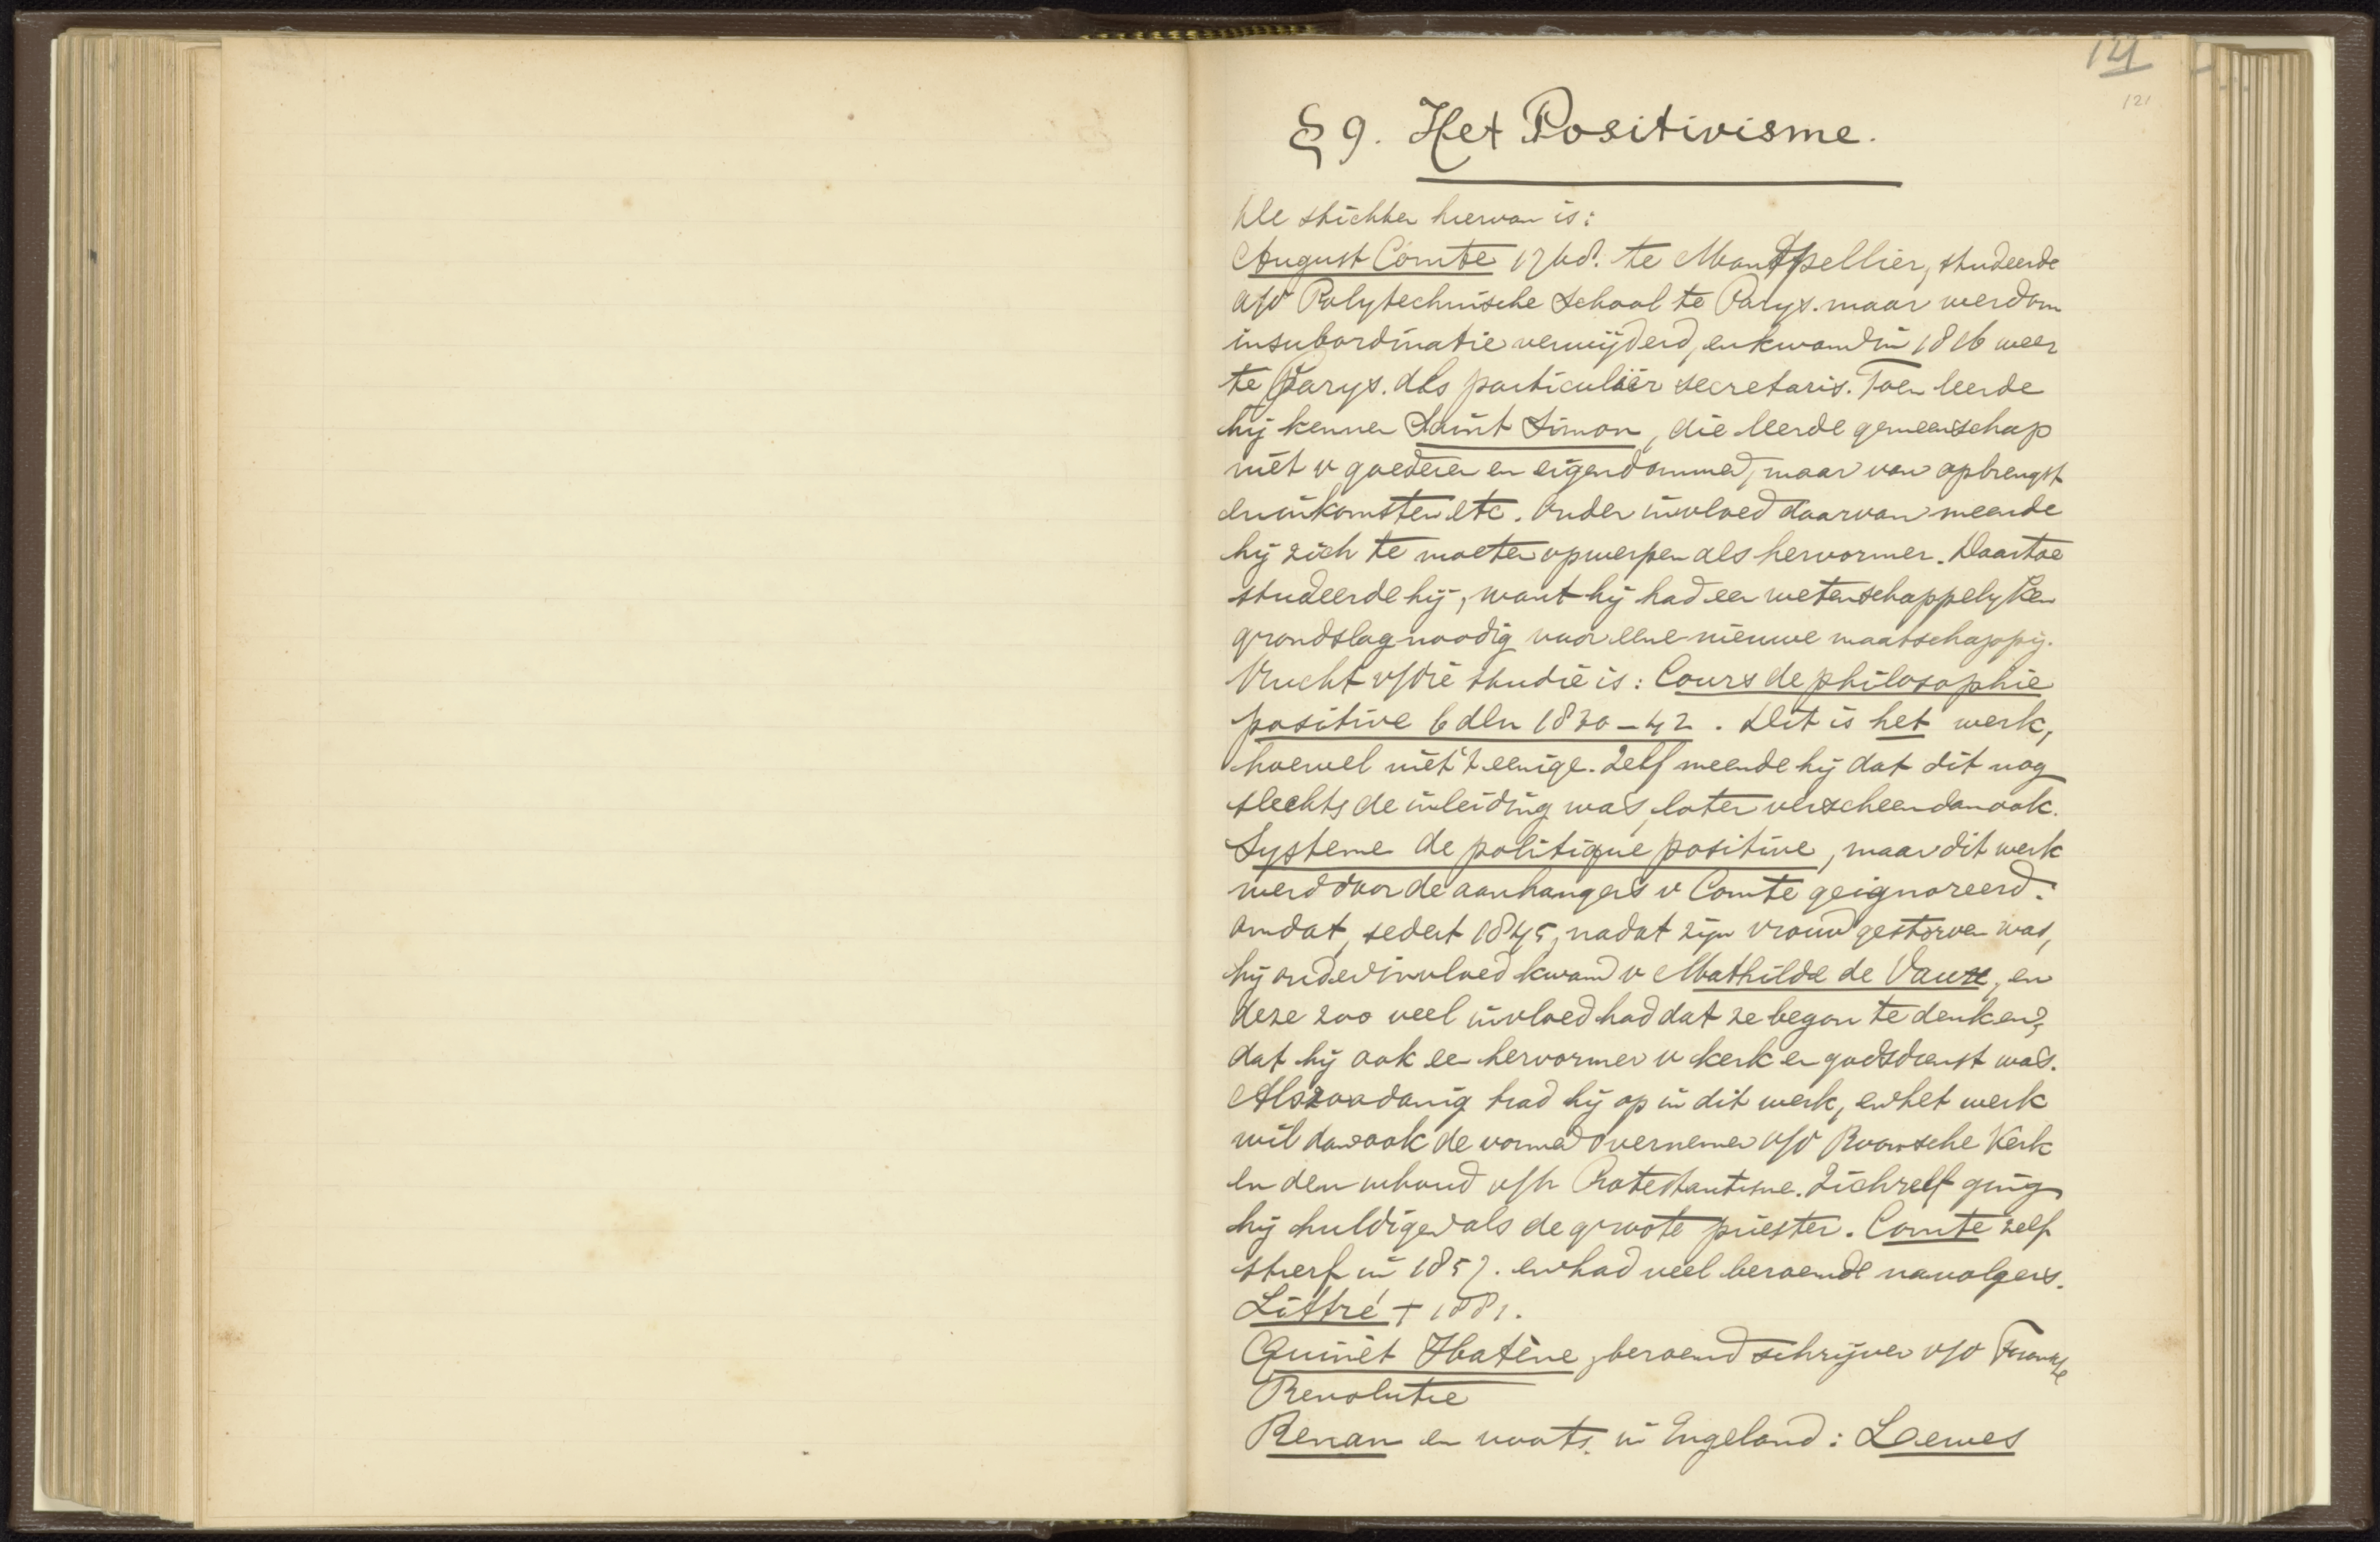 121
121
§ 9. Het Positivisme.
De stichter hiervan is:
August Comte te Montpellier, studeerde
a/d Polytechnische School te Parys. maar werd om
insubordinatie verwijderd, en kwam in 1816 weer
te Parys. als particulier secretaris. Toen leerde
hij kennen Saint Simon, die leerde gemeenschap
niet v goederen en eigendommen, maar van opbrengst
en inkomsten etc. Onder invloed daarvan meende
hij zich te moeten opwerpen als hervormer. Daartoe
studeerde hij, want hij had een wetenschappelyken
grondslag noodig voor eene nieuwe maatschappij.
Vrucht v/die studie is: Cours de philosophie
positive 6 dln 1830-42. Dit is het werk,
hoewel niet 't eenige. Zelf meende hij dat dit nog
slechts de inleiding was, later verscheen dan ook.
Systeme de politique positive, maar dit werk
werd door de aanhangers v Comte geignoreerd.
omdat, sedert 1845, nadat zijn vrouw gestorven was,
hij onder invloed kwam v Mathilde de Vaux, en
deze zoo veel invloed had dat ze begon te denken,
dat hij ook een hervormer v kerk en godsdienst was.
Als zoodanig trad hij op in dit werk, en het werk
wil dan ook de vormen overnemen v/d Roomsche Kerk
en den inhoud v/h Protestantisme. Zichzelf ging
hij huldigen als de groote priester. Comte zelf
stierf in 1857. en had veel beroemde navolgers.
Littré † 1881.
Quinet beroemd schrijver v/d Fransche
Revolutie
Renan en voorts. in Engeland: Lewes